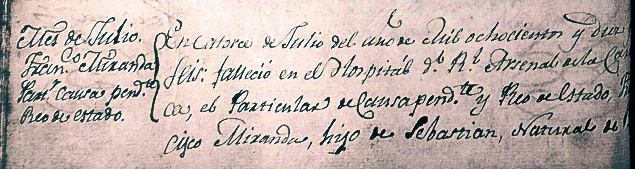 Mes de Julio.
Fran.co Miranda
Part.r Causa pend.te
Reo de estado.
En catorce de Julio del año de Mil ochocientos y diez
seis: falleció en el Hospitál d.l R.l Arsenal de la Ca
ca, el Particular de Causa pend.te y Reo de Estado,
cisco Miranda, hijo de Sebastian, Natural de